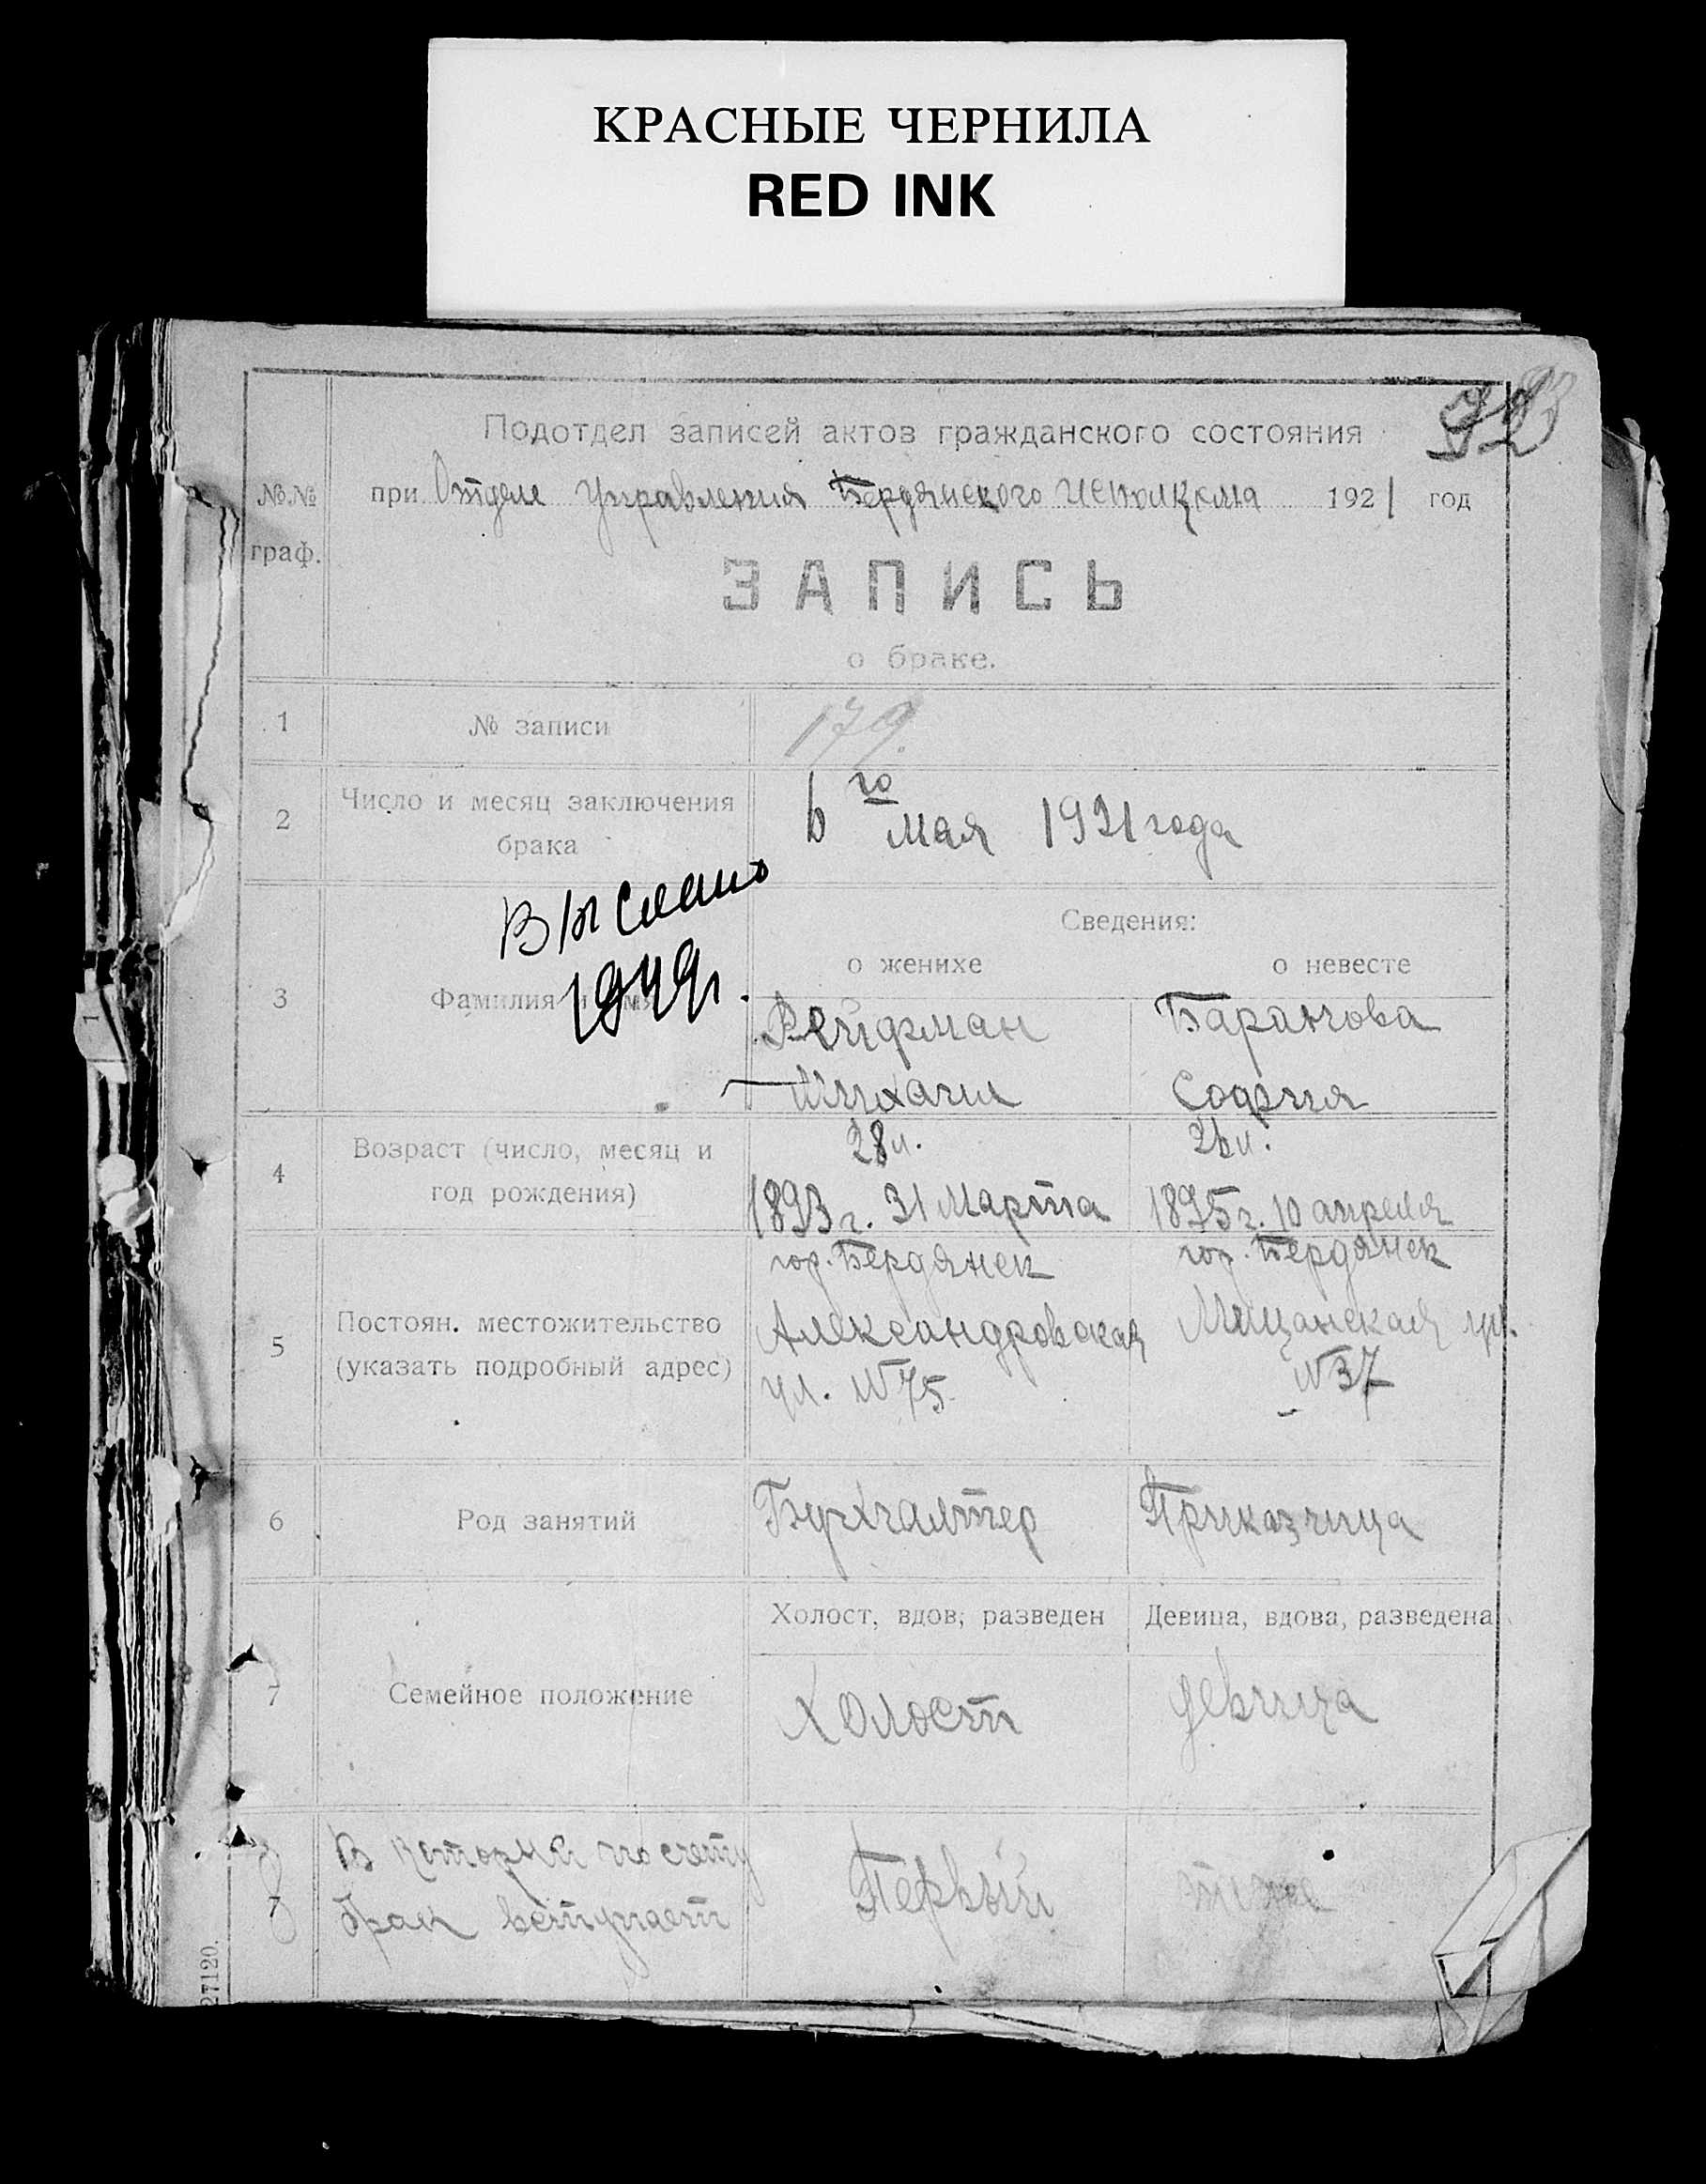 КРАСНЫЕ ЧЕРНИЛА
RED INK
Подотдел записей актов гражданского состояния
№№ граф.
при Отделе Управления Бердянского Исполкома 1921 год
ЗАПИСЬ
о браке.
1 № записи 179.
2 Число и месяц заключения брака
6го мая 1921 года
Выслано
1949г.
Сведения:
о женихе о невесте
3 Фамилия и имя
Рейфман Баранова
Михаил София
4 Возраст (число, месяц и год рождения)
28 л. 26 л.
1893 г. 31 Марта 1895 г. 10 апреля
5 Постоян. местожительство (указать подробный адрес)
гор. Бердянск гор. Бердянск
Александровская Мещанская ул.
ул. № 75 № 37
6 Род занятий Бухгалтер Приказчица
Холост, вдов, разведен Девица, вдова, разведена
7 Семейное положение Холост девица
8 В который по счету
брак вступает Первый тоже
27120.